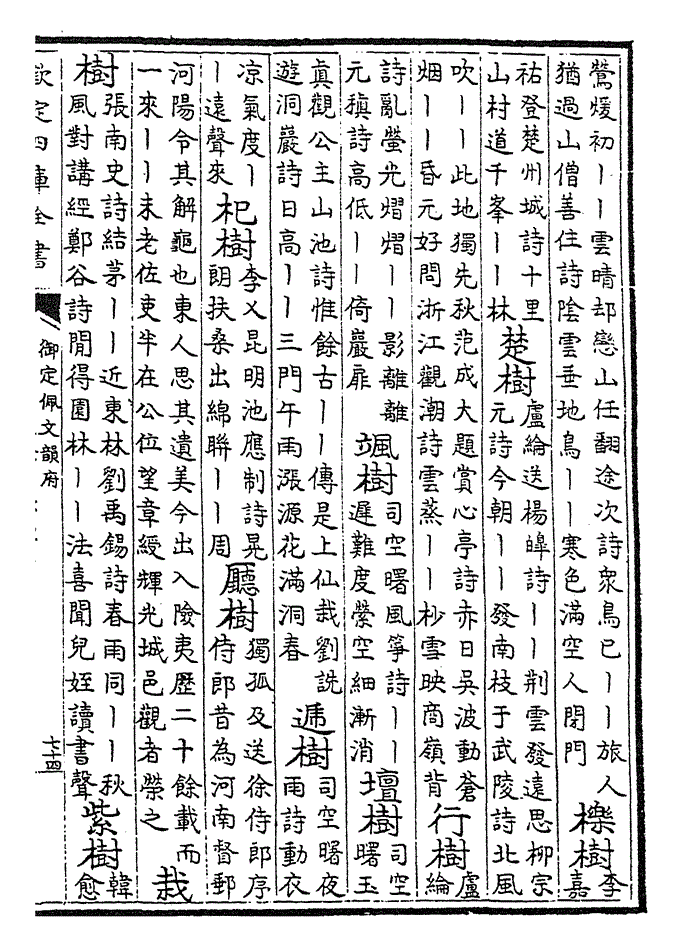 鶯煖初丨丨雲晴却戀山任翻途次詩衆鳥已丨丨旅人
猶過山僧善住詩陰雲垂地鳥丨丨寒色滿空人閉門
櫟樹
李
嘉
祐登楚州城詩十里
山村道千峯丨丨林
楚樹
盧綸送楊皡詩丨丨荆雲發遠思柳宗
元詩今朝丨丨發南枝于武陵詩北風
吹丨丨此地獨先秋范成大題賞心亭詩赤日吳波動蒼
烟丨丨昏元好問浙江觀潮詩雲蒸丨丨杪雪映商嶺背
行樹
盧
綸
詩亂螢光熠熠丨丨影離離
元稹詩高低丨丨倚巖扉
颯樹
司空曙風箏詩丨丨
遲難度縈空細漸消
壇樹
司空
曙玉
真觀公主山池詩惟餘古丨丨傳是上仙栽劉詵
遊洞巖詩日高丨丨三門午雨漲源花滿洞春
遞樹
司空曙夜
雨詩動衣
凉氣度丨
丨遠聲來
杞樹
李乂昆明池應制詩晃
朗扶桑出綿聯丨丨周
廳樹
獨孤及送徐侍郎序
侍郎昔為河南督郵
河陽令其解龜也東人思其遺美今出入險夷歷二十餘載而
一來丨丨未老佐吏半在公位望章綬輝光城邑觀者榮之
栽
樹
張南史詩結茅丨丨近東林劉禹錫詩春雨同丨丨秋
風對講經鄭谷詩閒得園林丨丨法喜聞兒姪讀書聲
紫樹
韓
愈
欽定四庫全書
御定佩文韻府
七十四